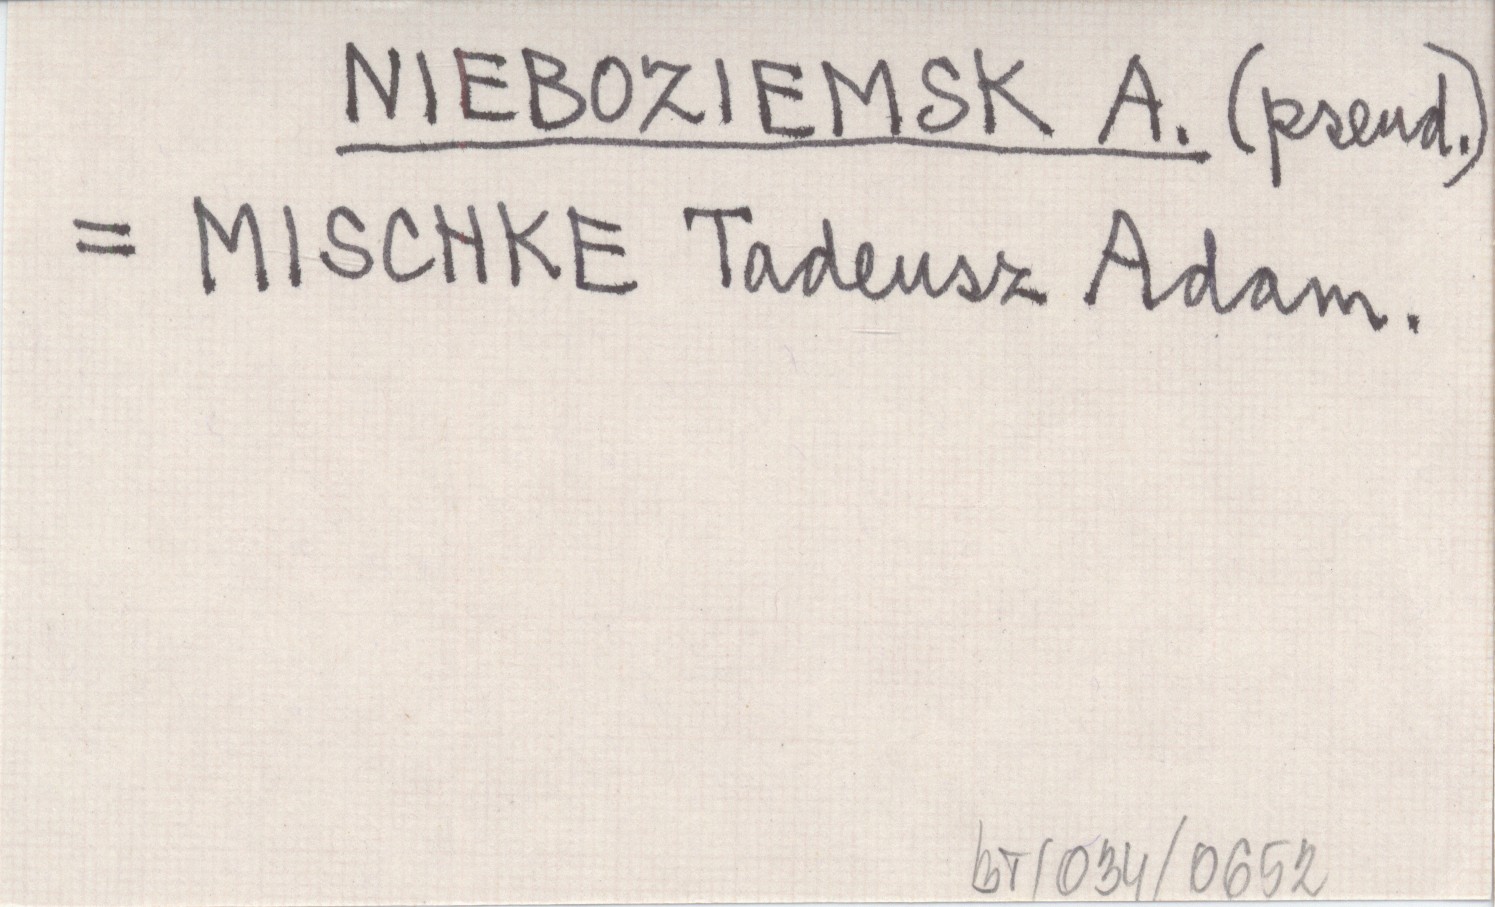 NIEBOZIEMSK A. (pseud.)
= MISCHKE Tadeusz Adam.
BT/034/0652